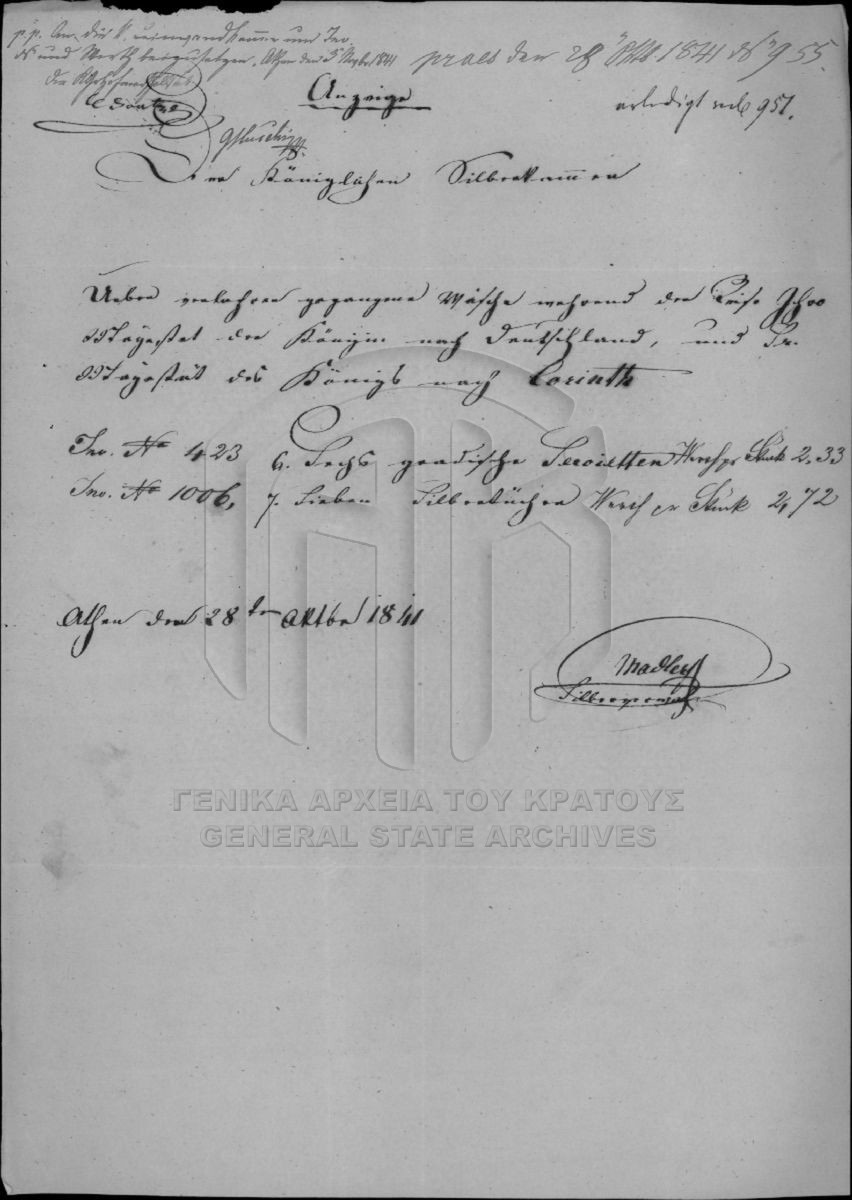 p. p. An die k. Leinwandkammer um Inv.
N und Werth beizusetzen. Athen den 5 Novbr 1841
praes den 28 Oktb. 1841 N 955.
Anzeige
erledigt sub 951.
Der Königlichen Silberkammer
Ueber verlohren gegangene Wäsche während der Reise Ihro
Majestet der Königin nach Deutschland, und Sr.
Majestät des Königs nach Corinth
Inv. No 423 6. Sechs gradische Servietten Werth pr Stück 2,33
Inv. No 1006, 7. Sieben Silbertücher Werth pr Stück 2,72
Athen den 28ten Oktbr 1841
Madler
ΓΕΝΙΚΑ ΑΡΧΕΙΑ ΤΟΥ ΚΡΑΤΟΥΣ
GENERAL STATE ARCHIVES